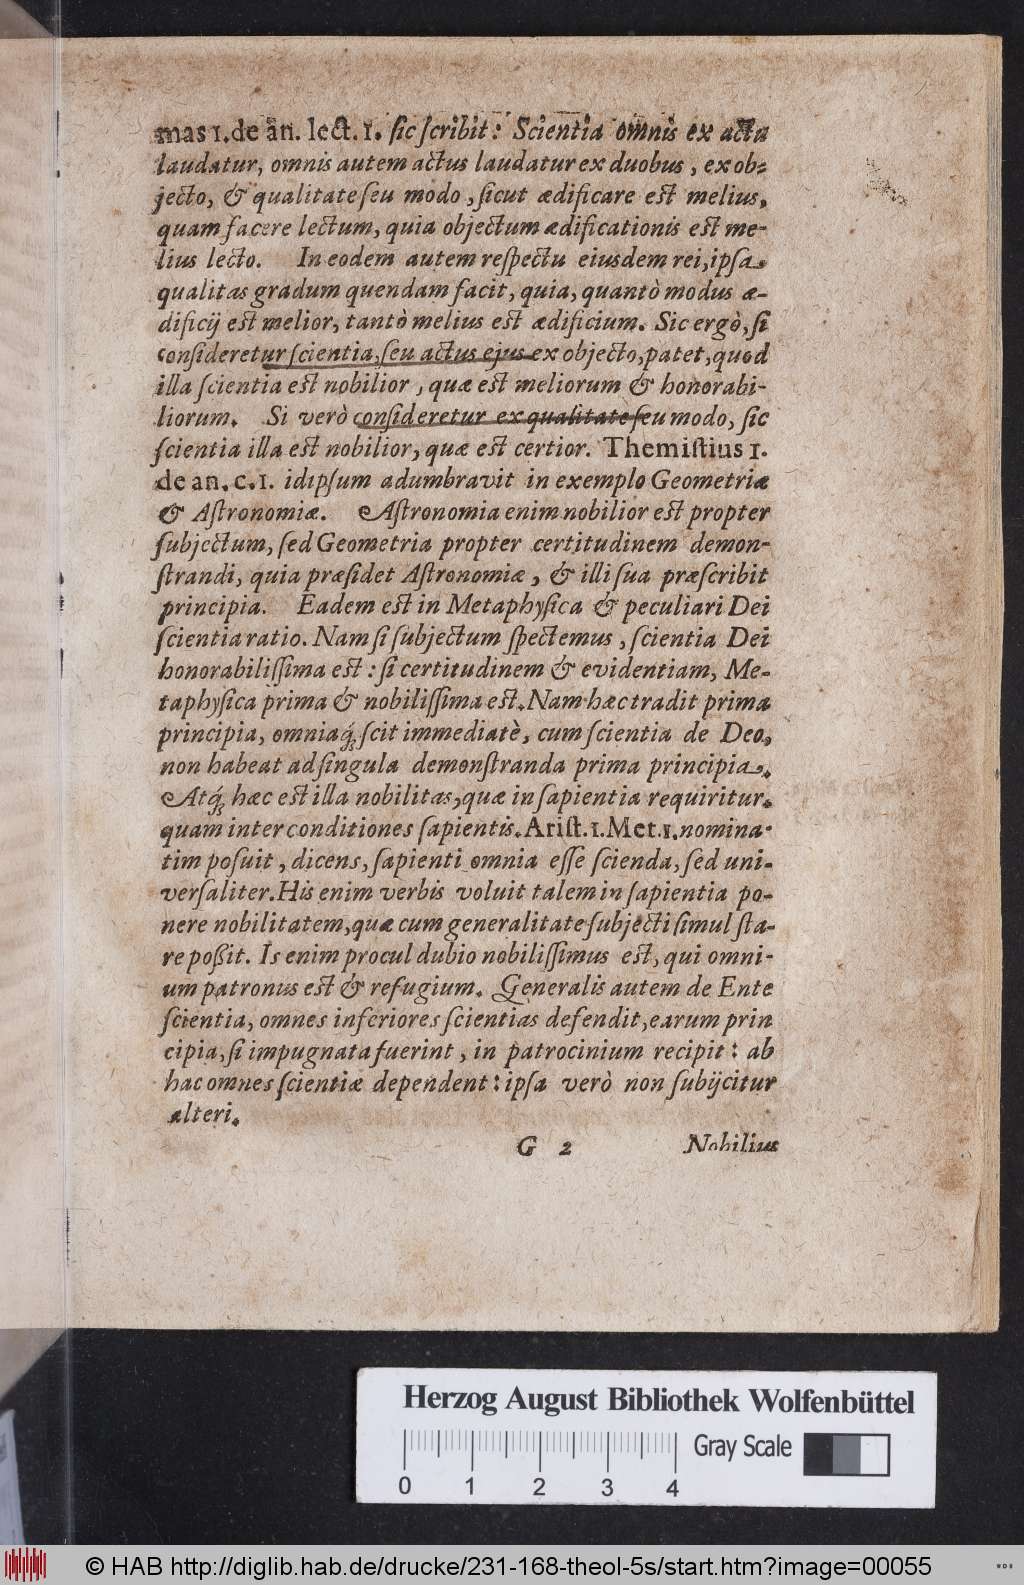 mas 1. de an. lect. 1. sic scribit: Scientia omnis ex actu
laudatur, omnis autem actus laudatur ex duobus, ex ob-
jecto, & qualitate seu modo, sicut ædificare est melius,
quam facere lectum, quia objectum ædificationis est me-
lius lecto. In eodem autem respectu eiusdem rei, ipsa
qualitas gradum quendam facit, quia, quantò modus æ-
dificij est melior, tantò melius est ædificium. Sic ergò, si
consideretur scientia, seu actus ejus ex objecto, patet, quod
illa scientia est nobilior, quæ est meliorum & honorabi-
liorum. Si verò consideretur ex qualitate seu modo, sic
scientia illa est nobilior, quæ est certior. Themistius 1.
de an. c. 1. idipsum adumbravit in exemplo Geometriæ
& Astronomiæ. Astronomia enim nobilior est propter
subjectum, sed Geometria propter certitudinem demon-
strandi, quia præsidet Astronomiæ, & illi sua præscribit
principia. Eadem est in Metaphysica & peculiari Dei
scientia ratio. Nam si subjectum spectemus, scientia Dei
honorabilissima est: si certitudinem & evidentiam, Me-
taphysica prima & nobilissima est. Nam hæc tradit prima
principia, omniaq́; scit immediatè, cum scientia de Deo,
non habeat ad singula demonstranda prima principia.
Atq́; hæc est illa nobilitas, quæ in sapientia requiritur,
quam inter conditiones sapientis. Arist. 1. Met. 1. nomina-
tim posuit, dicens, sapienti omnia esse scienda, sed uni-
versaliter. His enim verbis voluit talem in sapientia po-
nere nobilitatem, quæ cum generalitate subjecti simul sta-
re poßit. Is enim procul dubio nobilissimus est, qui omni-
um patronus est & refugium. Generalis autem de Ente
scientia, omnes inferiores scientias defendit, earum prin
cipia, si impugnata fuerint, in patrocinium recipit: ab
hac omnes scientiæ dependent: ipsa verò non subijcitur
alteri.
G 2 Nobilius
Herzog August Bibliothek Wolfenbüttel
Gray Scale
0 1 2 3 4
© HAB http://diglib.hab.de/drucke/231-168-theol-5s/start.htm?image=00055